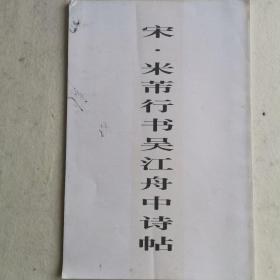 宋·米芾行书吴江舟中诗帖